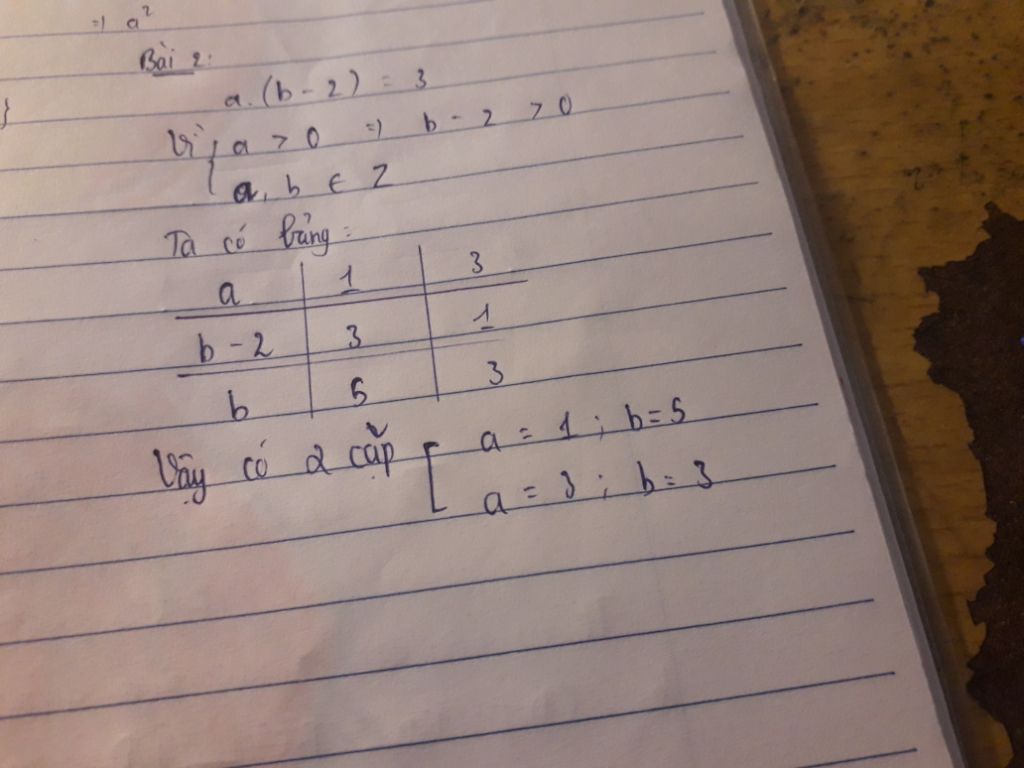 =) a²
Bài 2:
}
a. (b - 2) = 3
Vì { a > 0 =) b - 2 > 0
a, b ∈ Z
Ta có bảng:
a | 1 | 3
b - 2 | 3 | 1
b | 5 | 3
Vậy có 2 cặp [ a = 1 ; b = 5
a = 3 ; b = 3